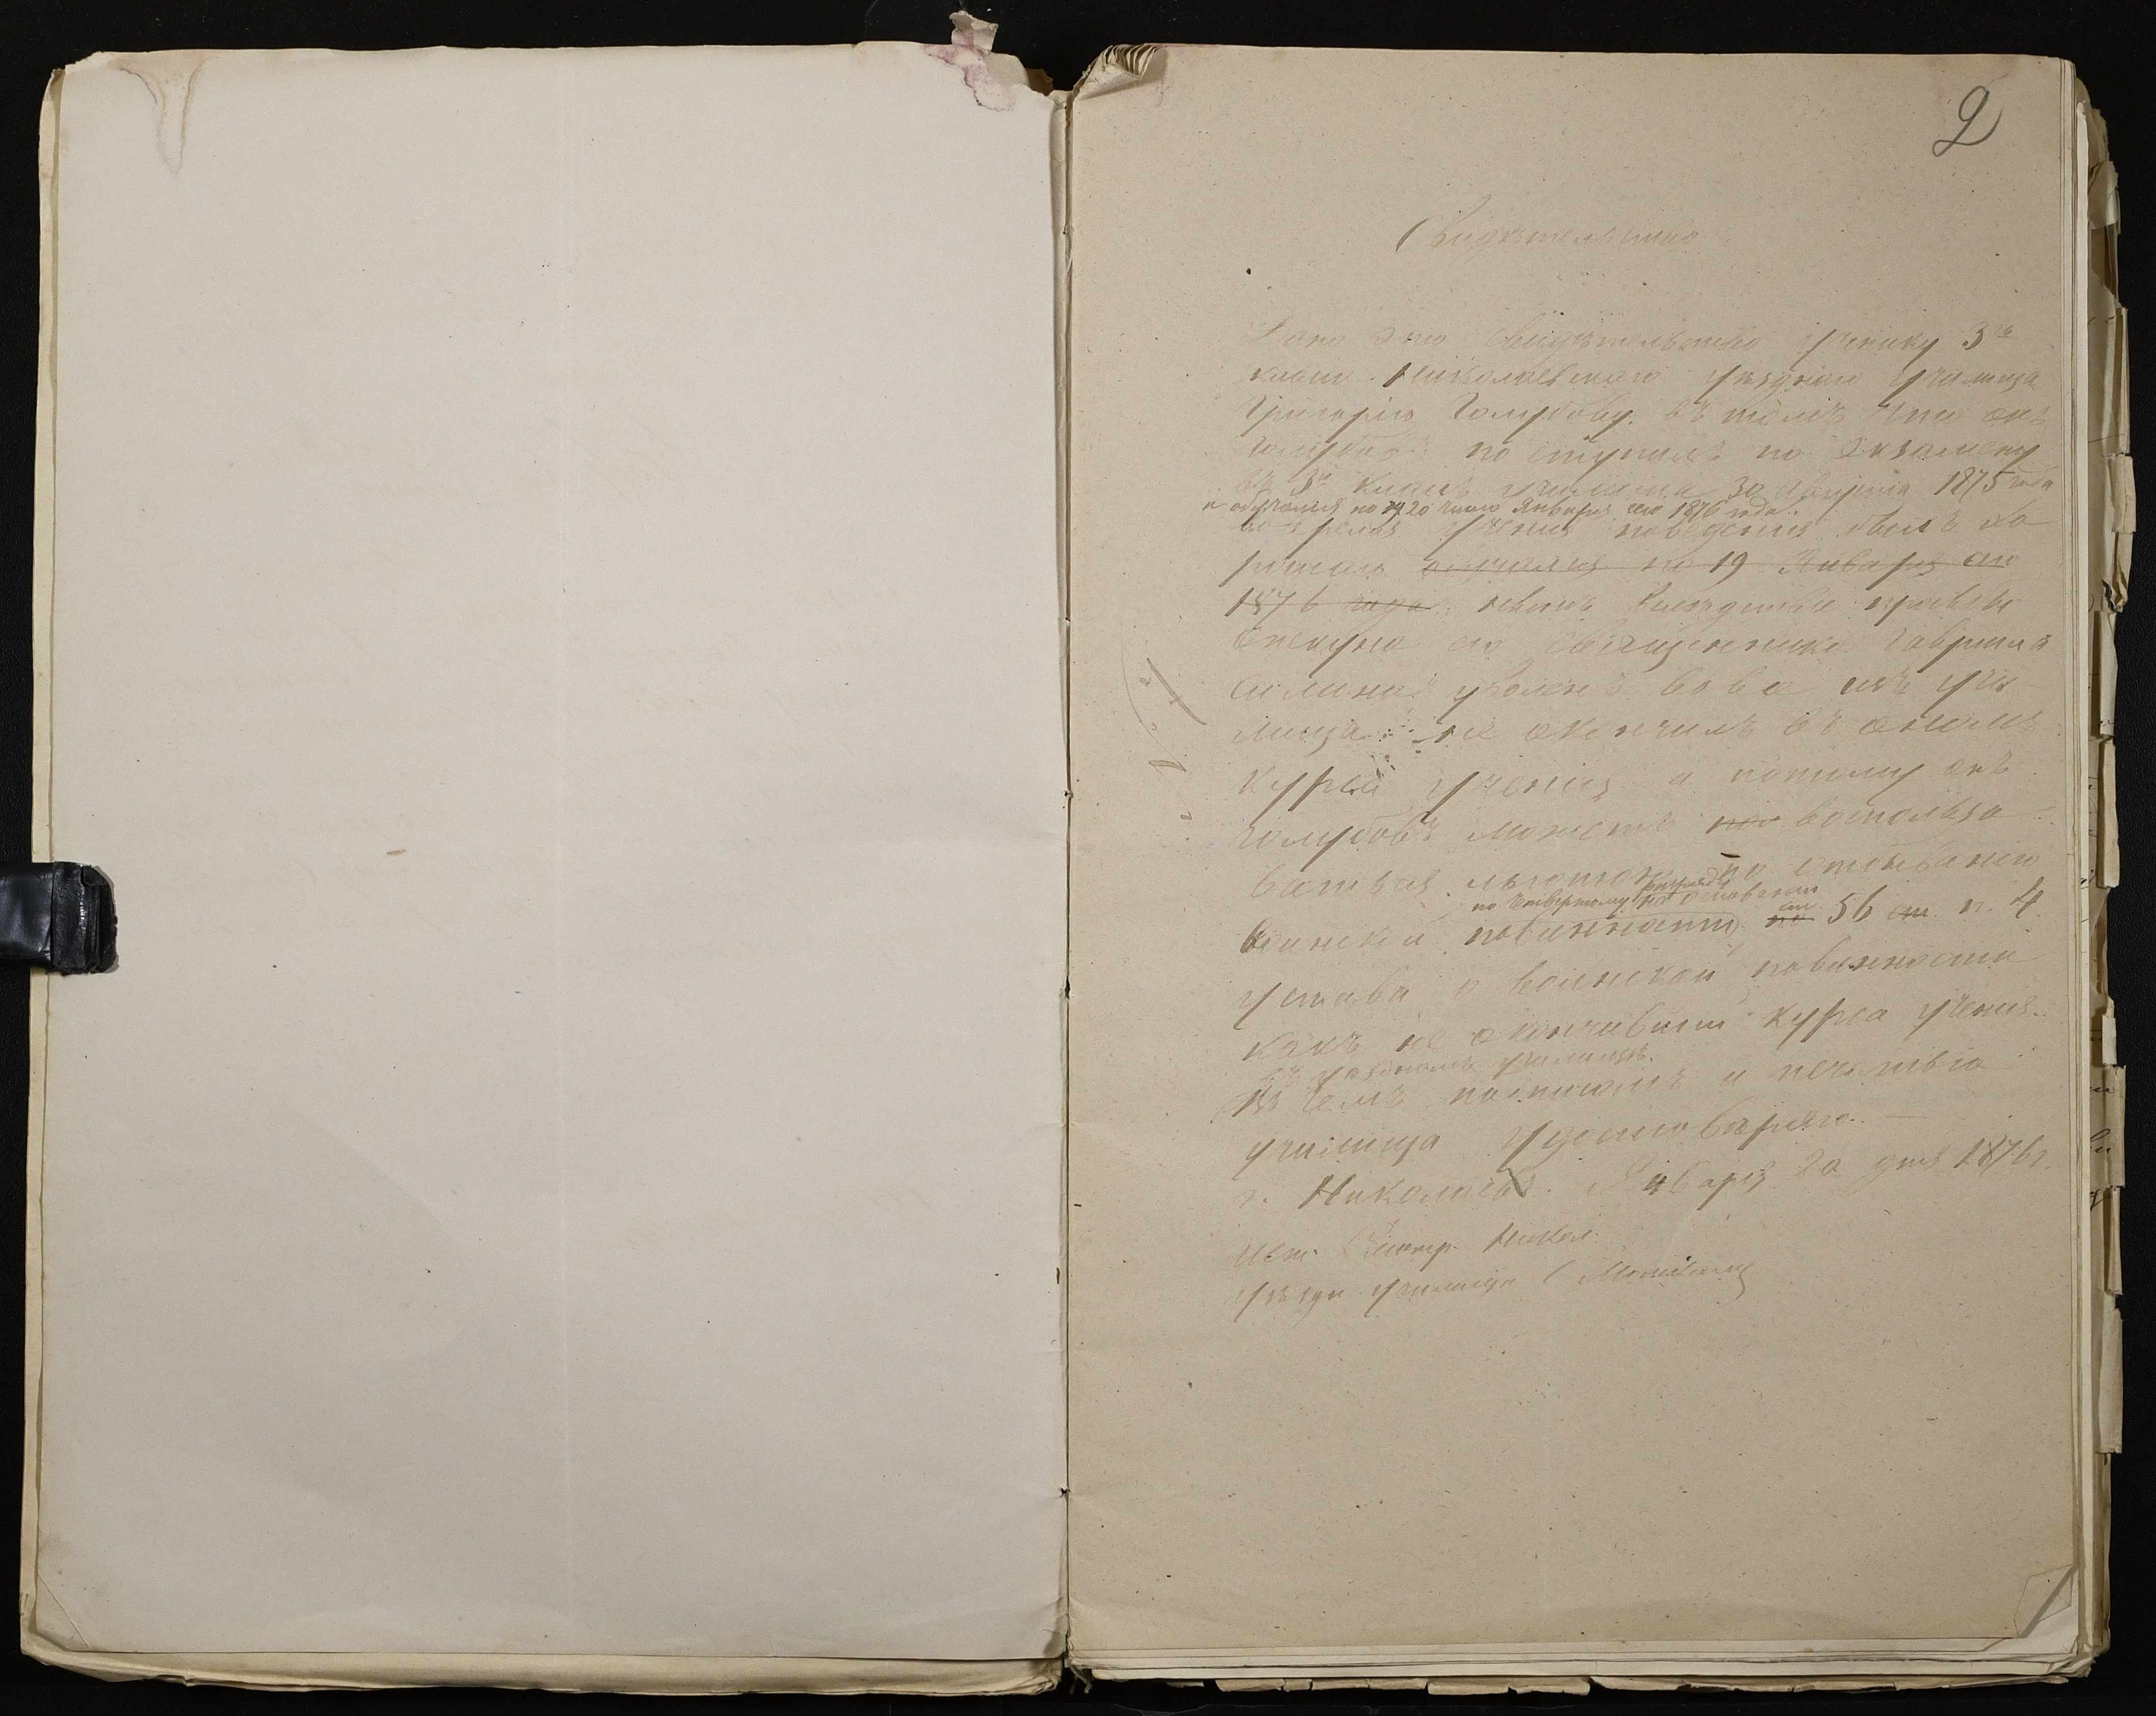 2
Свидѣтельство
Дано это свидѣтельство ученику 3го
класса Николаевскаго уѣзднаго училища
Григорію Голубову въ томъ что онъ
Голубовъ поступилъ по экзамену
въ 3й классъ училища 30 Августа 1875 года
и обучался по 20 число Января сего 1876 года
во время ученія поведенія былъ хо
рошаго обучался по 19 Января сего
1876 года
опекуна его священника Гавріила
уволенъ вовсе изъ учи
лища не окончилъ въ ономъ
курса ученія а потому онъ
Голубовъ можетъ вопользо
ваться льготою по отбыванію
по четвертому разряду на основаніи
воинской повинности по ст. 56 ст. п. 4
устава о воинской повинности
какъ не окончившій курса ученія
въ уѣздномъ училищѣ.
въ чемъ подписомъ и печатью
училища удостовѣряю.
г. Николаевъ. Января 20 дня 1876 г.
Смотр. Никол.
уѣздн училища